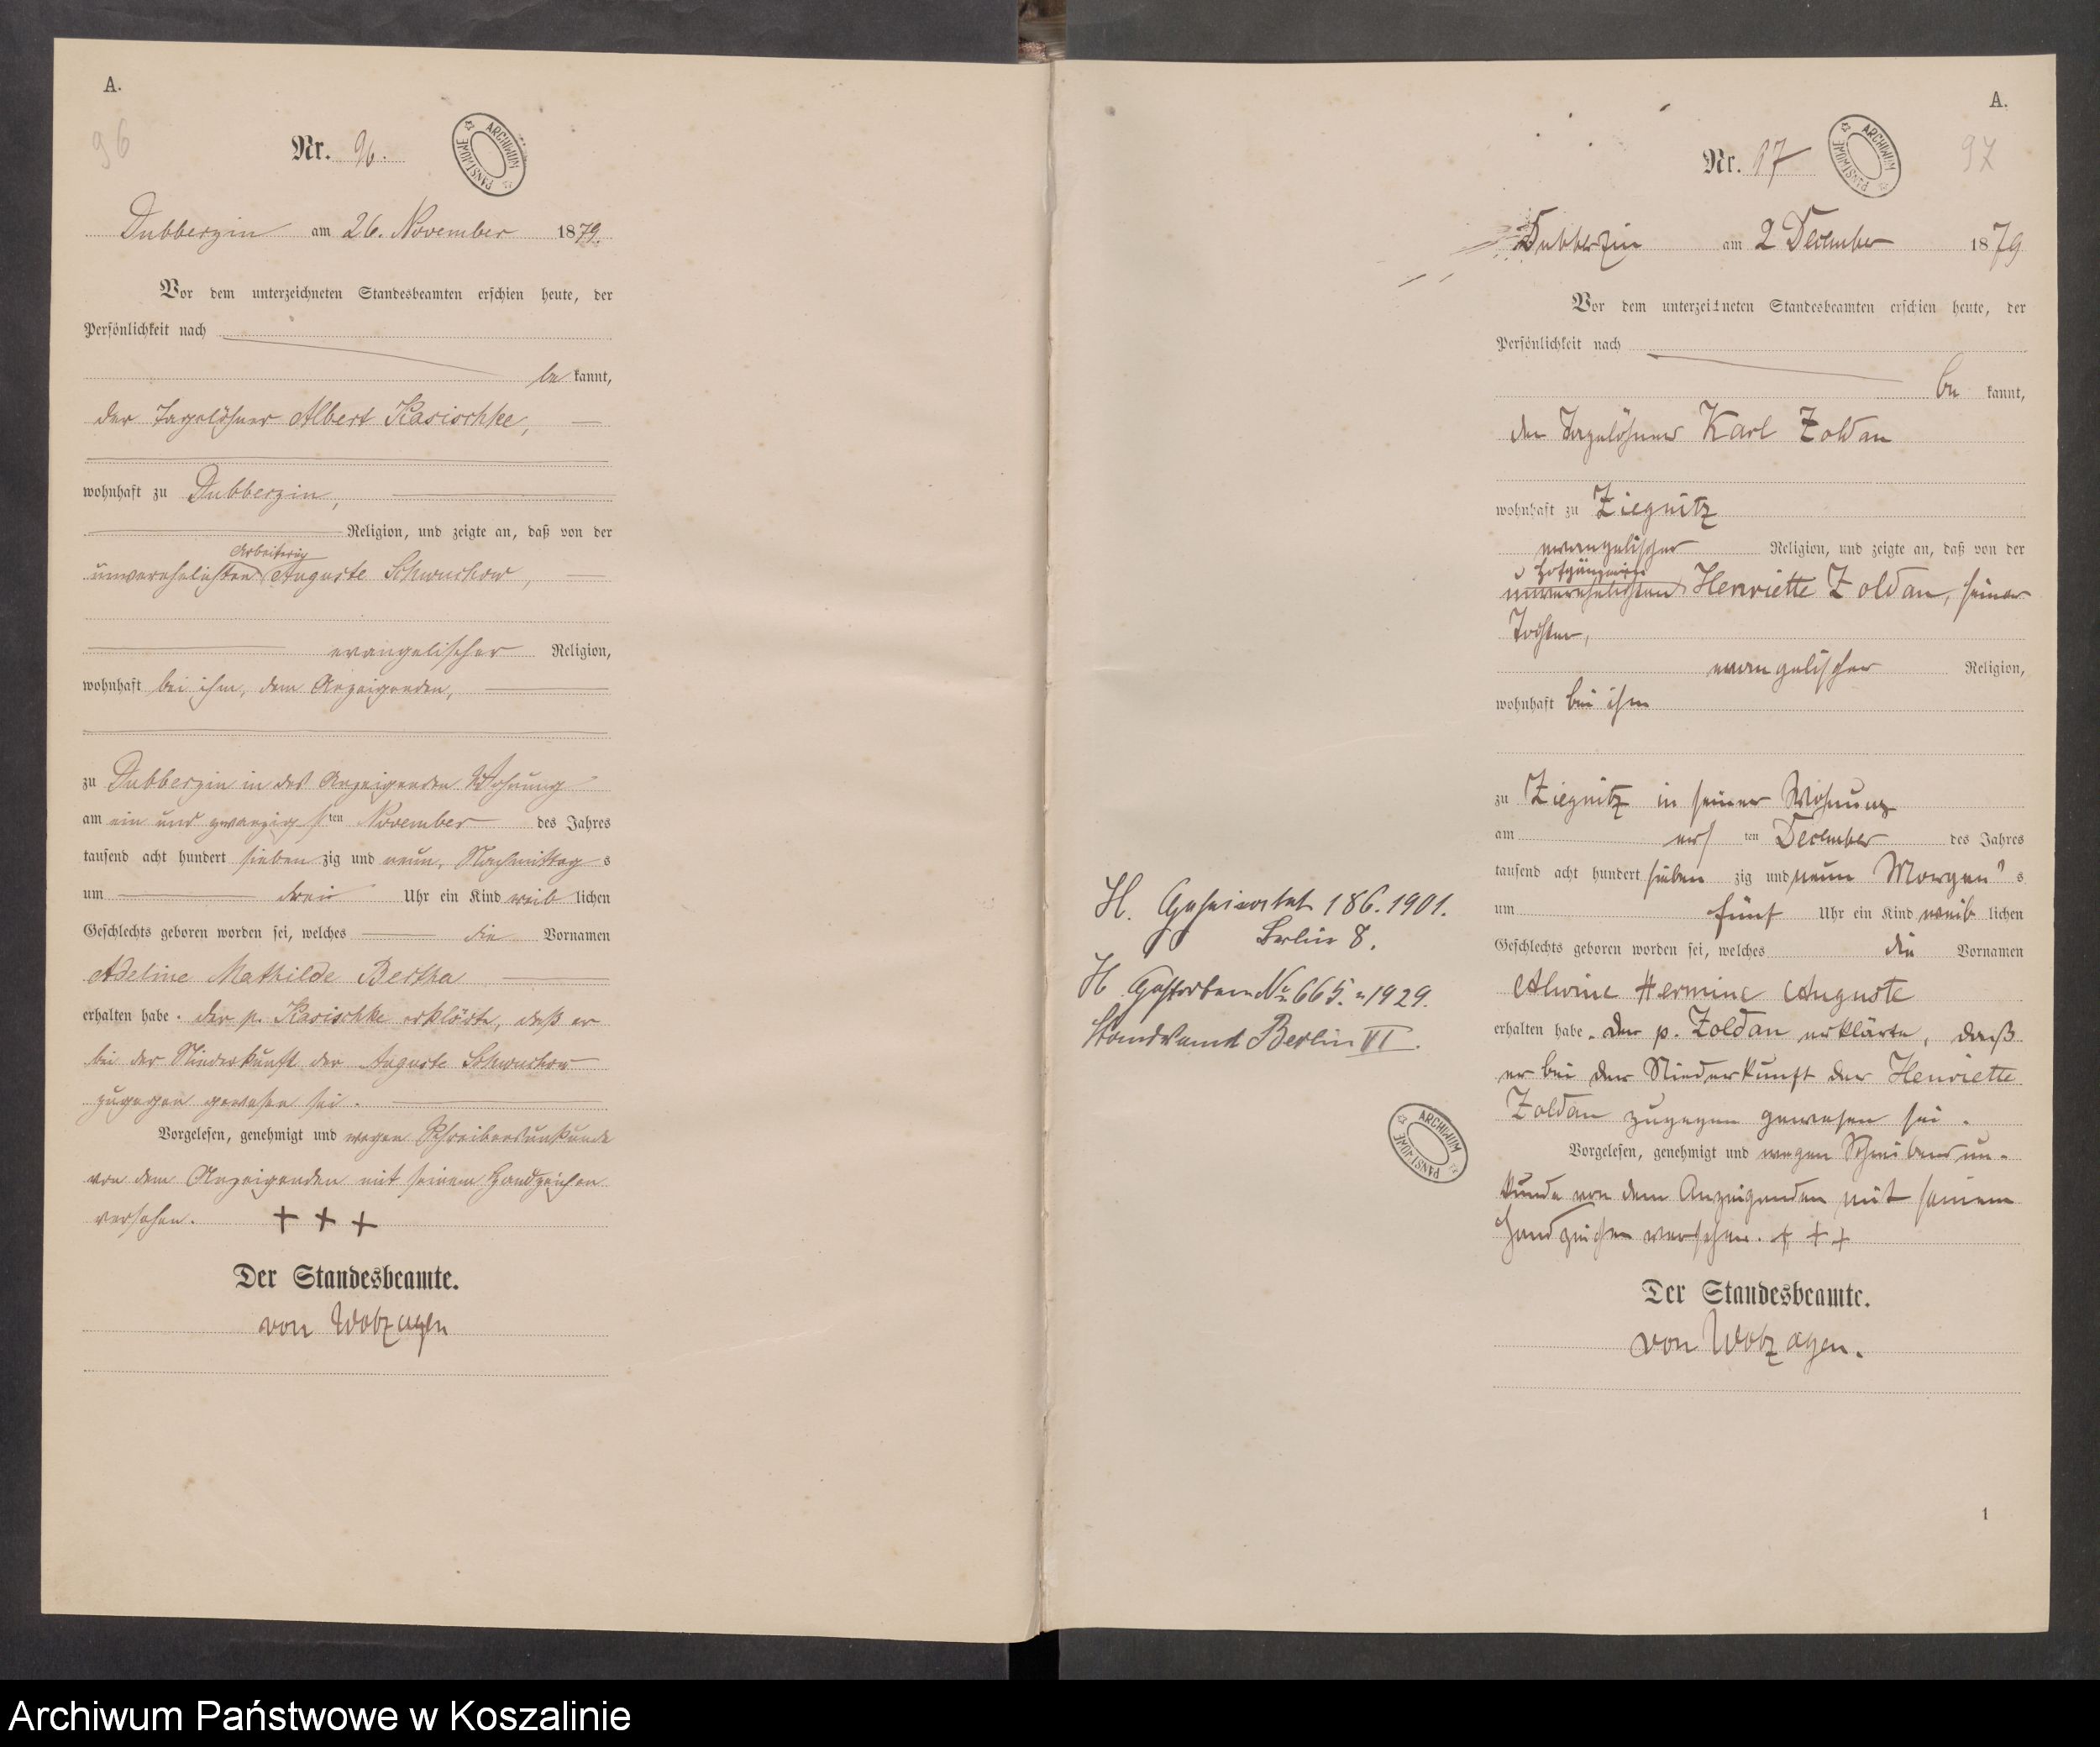 A.
96
Nr. 96.
ARCHIWUM PAŃSTWOWE
Dubberzin am 26. November 1879.
Vor dem unterzeichneten Standesbeamten erschien heute, der
Persönlichkeit nach
be kannt,
der Tagelöhner Albert Kasischke,
wohnhaft zu Dubberzin,
Religion, und zeigte an, daß von der
Arbeiterin
unverehelichten Auguste Schwuchow,
evangelischer Religion,
wohnhaft bei ihm, dem Anzeigenden,
zu Dubberzin in des Anzeigenden Wohnung
am ein und zwanzigsten November des Jahres
tausend acht hundert sieben zig und neun, Nachmittag s
um drei Uhr ein Kind weib lichen
Geschlechts geboren worden sei, welches die Vornamen
Adeline Mathilde Bertha
erhalten habe. Der p. Kasischke erklärte, daß er
bei der Niederkunft der Auguste Schwuchow
zugegen gewesen sei.
Vorgelesen, genehmigt und wegen Schreibensunkunde
von dem Anzeigenden mit seinem Handzeichen
versehen. + + +
Der Standesbeamte.
von Wobzagen
H. Geheiratet 186. 1901.
Berlin 8.
H Gestorben Nr 665. 1929.
Standesamt Berlin VI.
ARCHIWUM PAŃSTWOWE
A.
97
Nr. 97
ARCHIWUM PAŃSTWOWE
Dubberzin am 2 December 1879
Vor dem unterzeichneten Standesbeamten erschien heute, der
Persönlichkeit nach
be kannt,
der Tagelöhner Karl Zoldan
wohnhaft zu Ziegnitz
evangelischer Religion, und zeigte an, daß von der
Hofgängerin
unverehelichten Henriette Zoldan, seiner
Tochter,
evangelischer Religion,
wohnhaft bei ihm
zu Ziegnitz in seiner Wohnung
am ersten December des Jahres
tausend acht hundert sieben zig und neun Morgen s
um fünf Uhr ein Kind weib lichen
Geschlechts geboren worden sei, welches die Vornamen
Alwine Hermine Auguste
erhalten habe. Der p. Zoldan erklärte, daß
er bei der Niederkunft der Henriette
Zoldan zugegen gewesen sei.
Vorgelesen, genehmigt und wegen Schreibensun-
kunde von dem Anzeigenden mit seinem
Handzeichen versehen. + + +
Der Standesbeamte.
von Wobzagen.
1
Archiwum Państwowe w Koszalinie